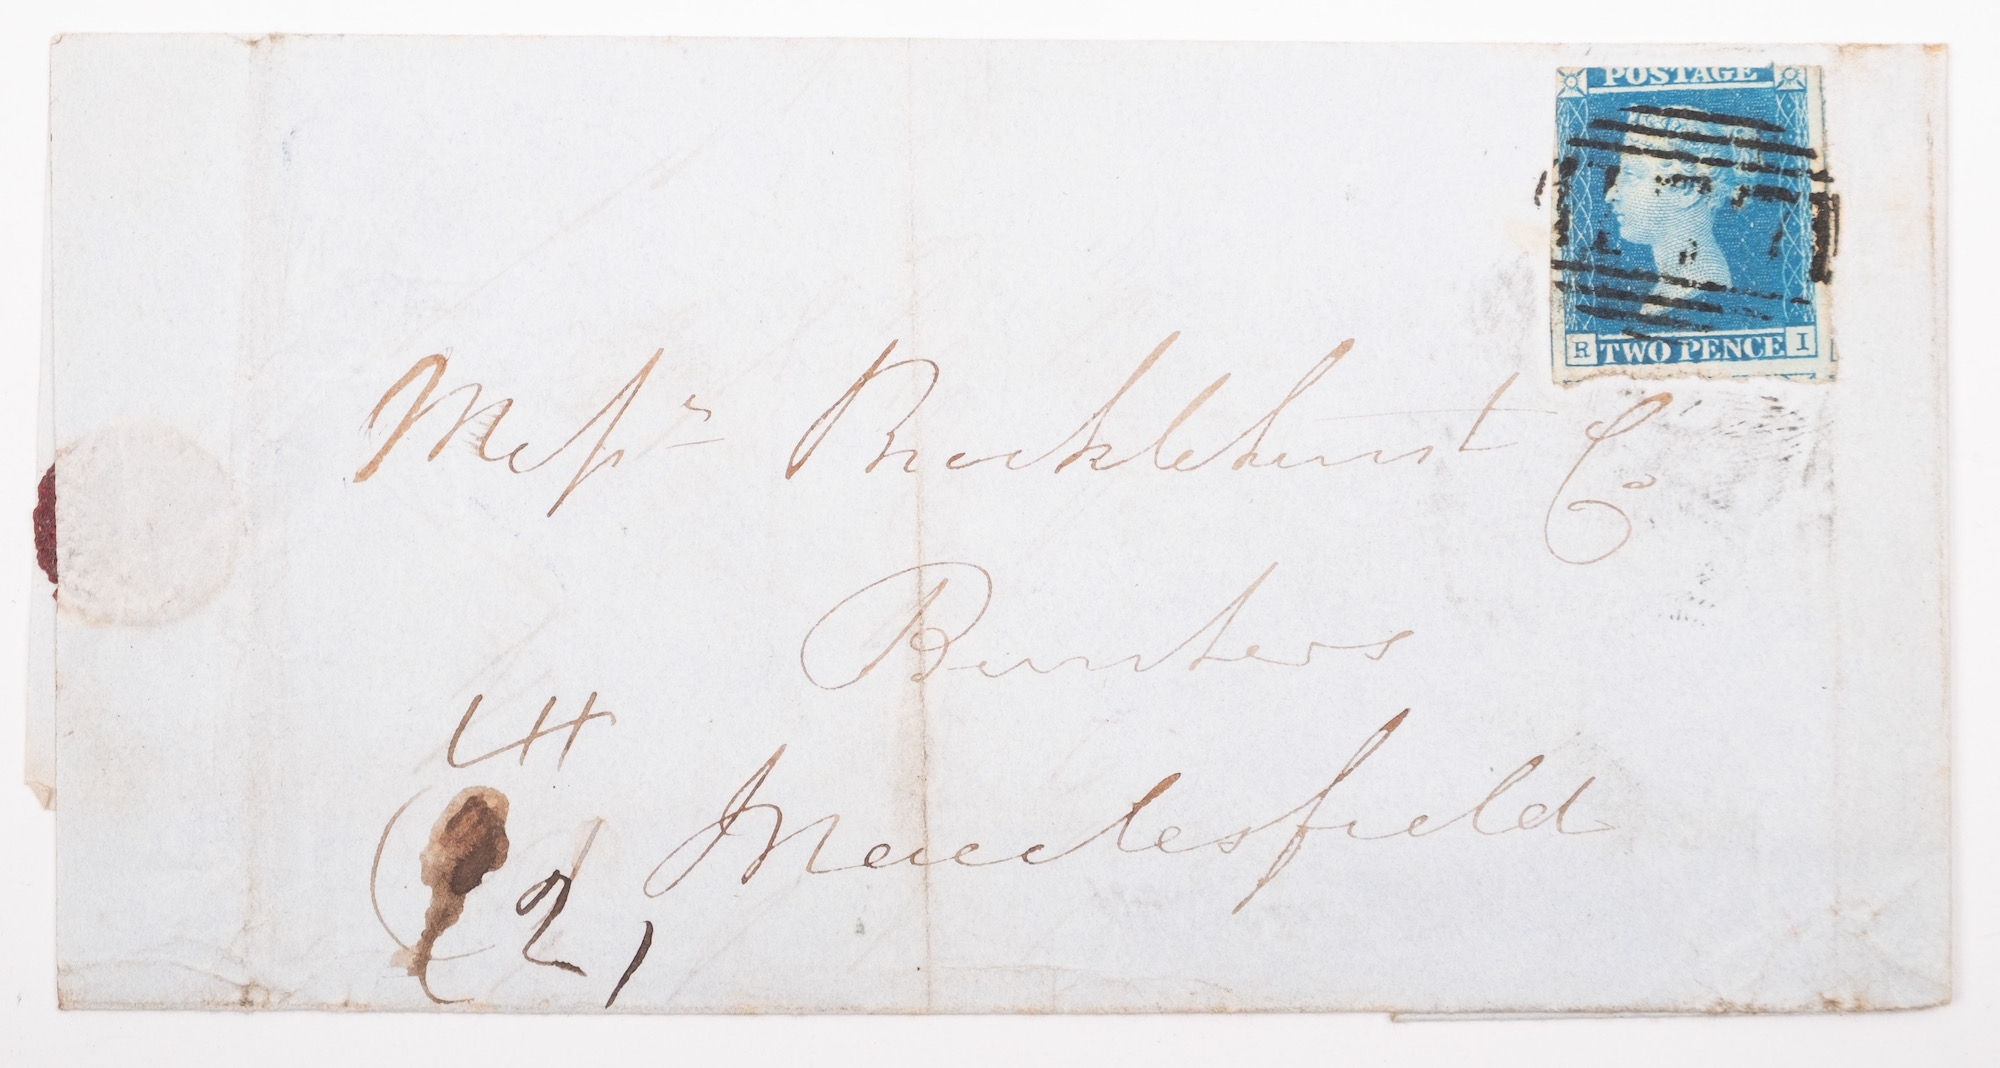 POSTAGE
R TWO PENCE I
Messrs Brocklehurst Co
Bunkers
Macclesfield
2